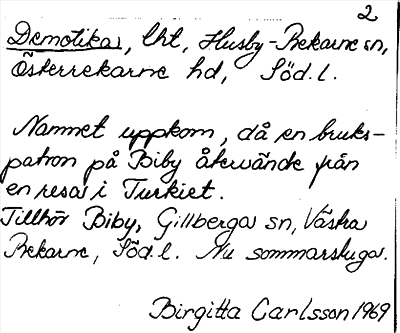 2
Demotika, lht, Husby-Rekarne sn,
Österrekarne hd, Söd. l.
Namnet uppkom, då en bruks-
patron på Biby återvände från
en resa i Turkiet.
Tillhör Biby, Gillberga sn, Västra
Rekarne, Söd. l. Nu sommarstuga.
Birgitta Carlsson 1969